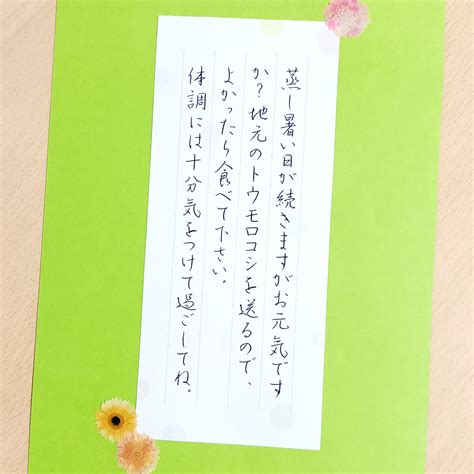 蒸し暑い日が続きますがお元気です
か？地元のトウモロコシを送るので、
よかったら食べて下さい。
体調には十分気をつけて過ごしてね。